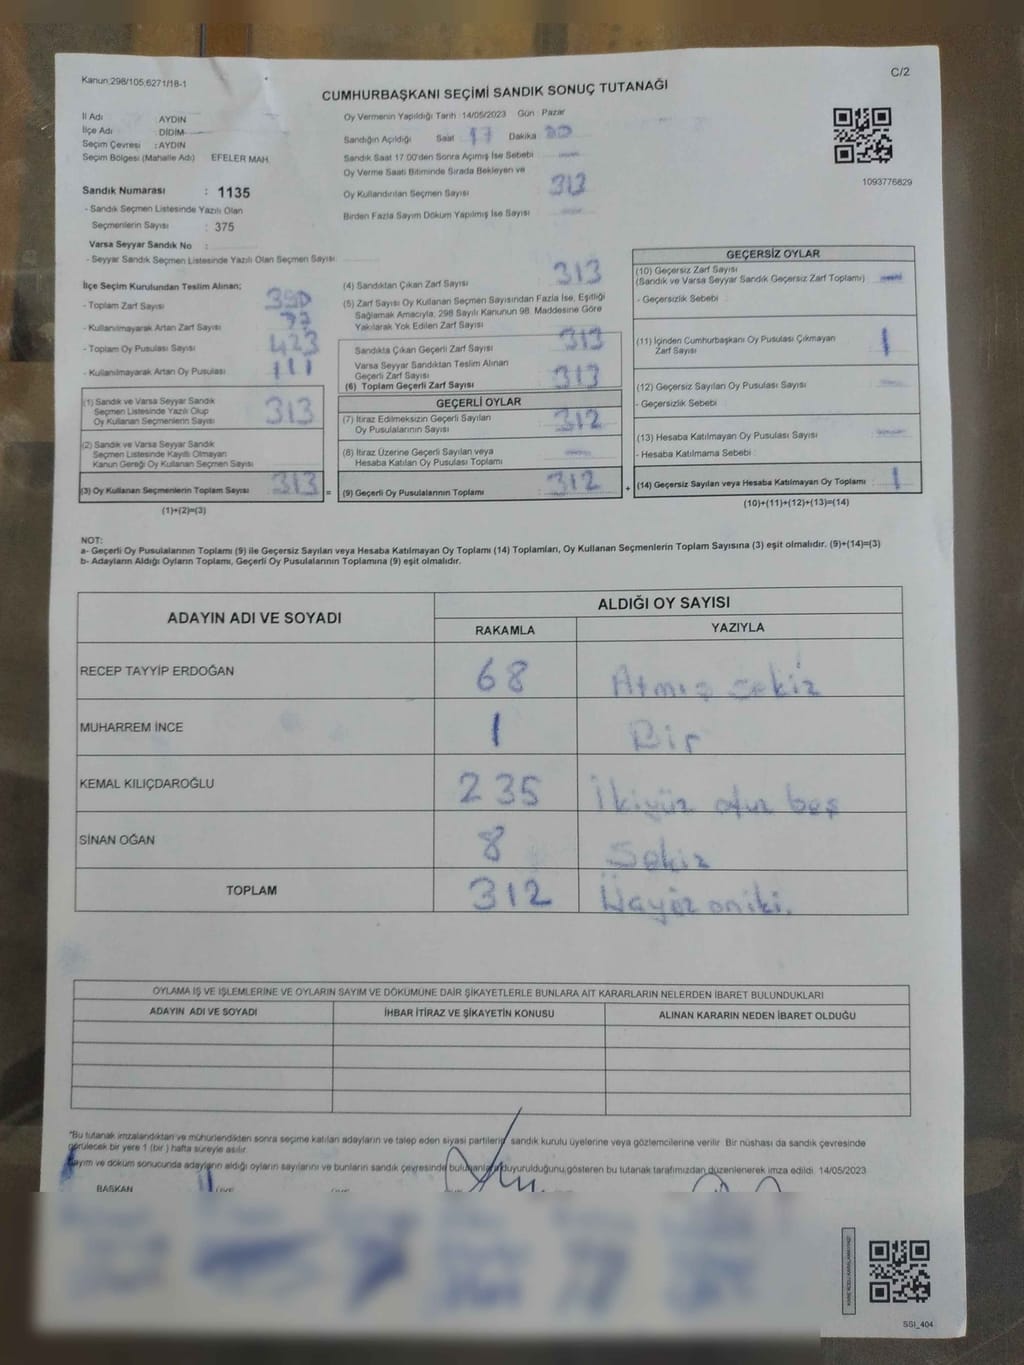 Kanun:298/105,6271/18-1
C/2
CUMHURBAŞKANI SEÇİMİ SANDIK SONUÇ TUTANAĞI
İl Adı : AYDIN
İlçe Adı : DİDİM
Seçim Çevresi : AYDIN
Seçim Bölgesi (Mahalle Adı) EFELER MAH.
Sandık Numarası : 1135
- Sandık Seçmen Listesinde Yazılı Olan
Seçmenlerin Sayısı : 375
Varsa Seyyar Sandık No :
- Seyyar Sandık Seçmen Listesinde Yazılı Olan Seçmen Sayısı
Oy Vermenin Yapıldığı Tarih :14/05/2023 Gün : Pazar
Sandığın Açıldığı Saat 17 Dakika
Sandık Saat 17:00'den Sonra Açımış İse Sebebi
Oy Verme Saati Bitiminde Sırada Bekleyen ve
Oy Kullandırılan Seçmen Sayısı 313
Birden Fazla Sayım Döküm Yapılmış İse Sayısı
1093776829
İlçe Seçim Kurulundan Teslim Alınan;
- Toplam Zarf Sayısı : 390
- Kullanılmayarak Artan Zarf Sayısı :
- Toplam Oy Pusulası Sayısı : 423
- Kullanılmayarak Artan Oy Pusulası : 111
(1) Sandık ve Varsa Seyyar Sandık
Seçmen Listesinde Yazılı Olup
Oy Kullanan Seçmenlerin Sayısı : 313
(2) Sandık ve Varsa Seyyar Sandık
Seçmen Listesinde Kayıtlı Olmayan
Kanun Gereği Oy Kullanan Seçmen Sayısı
(3) Oy Kullanan Seçmenlerin Toplam Sayısı : 313 =
(1)+(2)=(3)
(4) Sandıktan Çıkan Zarf Sayısı : 313
(5) Zarf Sayısı Oy Kullanan Seçmen Sayısından Fazla İse, Eşitliği
Sağlamak Amacıyla; 298 Sayılı Kanunun 98. Maddesine Göre
Yakılarak Yok Edilen Zarf Sayısı
Sandıkta Çıkan Geçerli Zarf Sayısı : 313
Varsa Seyyar Sandıktan Teslim Alınan
Geçerli Zarf Sayısı
(6) Toplam Geçerli Zarf Sayısı : 313
GEÇERLİ OYLAR
(7) İtiraz Edilmeksizin Geçerli Sayılan
Oy Pusulalarının Sayısı : 312
(8) İtiraz Üzerine Geçerli Sayılan veya
Hesaba Katılan Oy Pusulası Toplamı
(9) Geçerli Oy Pusulalarının Toplamı : 312 +
GEÇERSİZ OYLAR
(10) Geçersiz Zarf Sayısı
(Sandık ve Varsa Seyyar Sandık Geçersiz Zarf Toplamı) :
- Geçersizlik Sebebi :
(11) İçinden Cumhurbaşkanı Oy Pusulası Çıkmayan
Zarf Sayısı : 1
(12) Geçersiz Sayılan Oy Pusulası Sayısı :
- Geçersizlik Sebebi :
(13) Hesaba Katılmayan Oy Pusulası Sayısı :
- Hesaba Katılmama Sebebi :
(14) Geçersiz Sayılan veya Hesaba Katılmayan Oy Toplamı : 1
(10)+(11)+(12)+(13)=(14)
NOT:
a- Geçerli Oy Pusulalarının Toplamı (9) ile Geçersiz Sayılan veya Hesaba Katılmayan Oy Toplamı (14) Toplamları, Oy Kullanan Seçmenlerin Toplam Sayısına (3) eşit olmalıdır. (9)+(14)=(3)
b- Adayların Aldığı Oyların Toplamı, Geçerli Oy Pusulalarının Toplamına (9) eşit olmalıdır.
ADAYIN ADI VE SOYADI
ALDIĞI OY SAYISI
RAKAMLA YAZIYLA
RECEP TAYYİP ERDOĞAN 68 Atmış sekiz
MUHARREM İNCE 1 Bir
KEMAL KILIÇDAROĞLU 235 İkiyüz otuz beş
SİNAN OĞAN 8 Sekiz
TOPLAM 312 Üçyüz oniki.
OYLAMA İŞ VE İŞLEMLERİNE VE OYLARIN SAYIM VE DÖKÜMÜNE DAİR ŞİKAYETLERLE BUNLARA AİT KARARLARIN NELERDEN İBARET BULUNDUKLARI
ADAYIN ADI VE SOYADI İHBAR İTİRAZ VE ŞİKAYETİN KONUSU ALINAN KARARIN NEDEN İBARET OLDUĞU
*Bu tutanak imzalandıktan ve mühürlendikten sonra seçime katılan adayların ve talep eden siyasi partilerin sandık kurulu üyelerine veya gözlemcilerine verilir. Bir nüshası da sandık çevresinde
görülecek bir yere 1 (bir) hafta süreyle asılır.
Sayım ve döküm sonucunda adayların aldığı oyların sayılarını ve bunların sandık çevresinde duyurulduğunu gösteren bu tutanak tarafımızdan düzenlenerek imza edildi. 14/05/2023
BAŞKAN
SSI_404